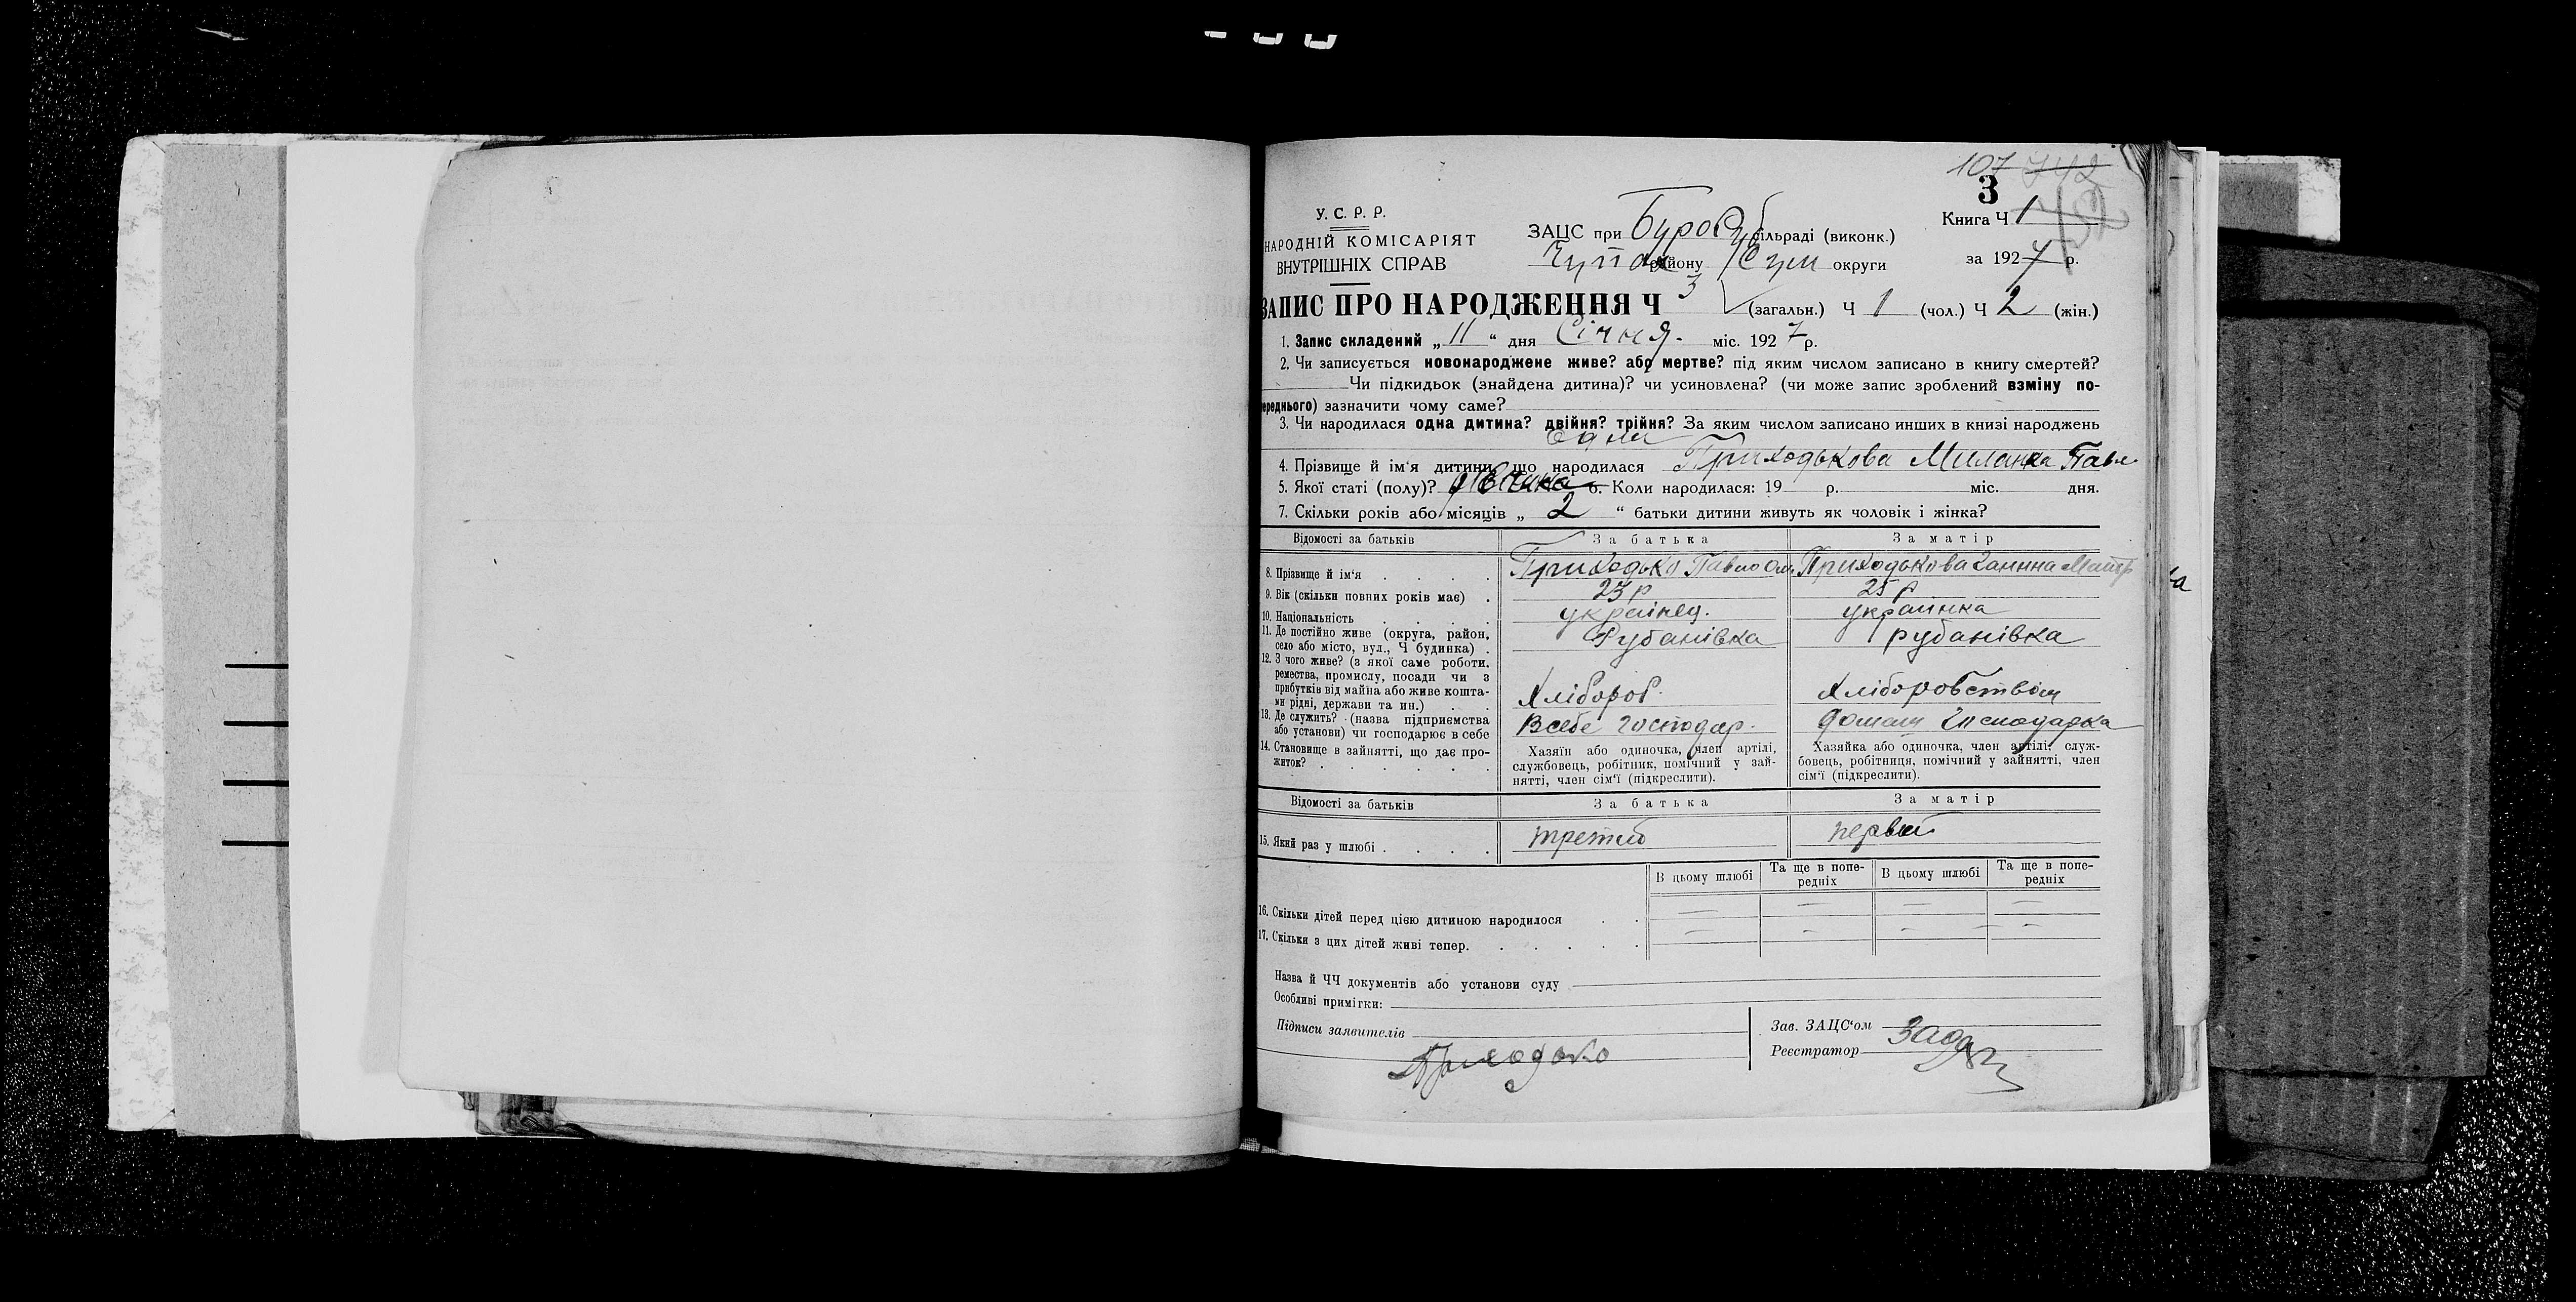 107 742
3
У. С. Р. Р.
НАРОДНІЙ КОМІСАРІЯТ
ВНУТРІШНІХ СПРАВ
ЗАЦС при сільраді (виконк.)
району Сум округи
Книга Ч 1
за 1927 р.
ЗАПИС ПРО НАРОДЖЕННЯ Ч 3 (загальн.) Ч 1 (чол.) Ч 2 (жін.)
1. Запис складений „ 11 “ дня Січня. міс. 1927 р.
2. Чи записується новонароджене живе? або мертве? під яким числом записано в книгу смертей?
Чи підкидьок (знайдена дитина)? чи усиновлена? (чи може запис зроблений взміну по-
переднього) зазначити чому саме?
3. Чи народилася одна дитина? двійня? трійня? За яким числом записано инших в книзі народжень
одна
4. Прізвище й ім'я дитини, що народилася Приходькова Миланка Павл
5. Якої статі (полу)? дівчинка 6. Коли народилася: 19 р. міс. дня.
7. Скільки років або місяців „ 2 “ батьки дитини живуть як чоловік і жінка?
Відомості за батьків За батька За матір
8. Прізвище й ім'я Приходько Павло Приходькова Ганна
9. Вік (скільки повних років має) 23 р 25 р
10. Національність українец. украинка
11. Де постійно живе (округа, район,
село або місто, вул., Ч будинка) Рубанівка рубанівка
12. З чого живе? (з якої саме роботи,
ремества, промислу, посади чи з
прибутків від майна або живе кошта-
ми рідні, держави та ин.) Хлібороб. Хліборобством
13. Де служить? (назва підприємства
або установи) чи господарює в себе В себе господар. Господарка
14. Становище в зайнятті, що дає про-
житок?
Хазяїн або одиночка, член артілі,
службовець, робітник, помічний у зай-
нятті, член сім'ї (підкреслити).
Хазяйка або одиночка, член артілі, служ-
бовець, робітниця, помічний у зайнятті, член
сім'ї (підкреслити).
Відомості за батьків За батька За матір
15. Який раз у шлюбі третий первый
В цьому шлюбі Та ще в попе-
редніх В цьому шлюбі Та ще в попе-
редніх
16. Скільки дітей перед цією дитиною народилося — — — —
17. Скільки з цих дітей живі тепер. — — — —
Назва й ЧЧ документів або установи суду
Особливі примітки:
Підписи заявителів
Приходько
Зав. ЗАЦС'ом
Реєстратор